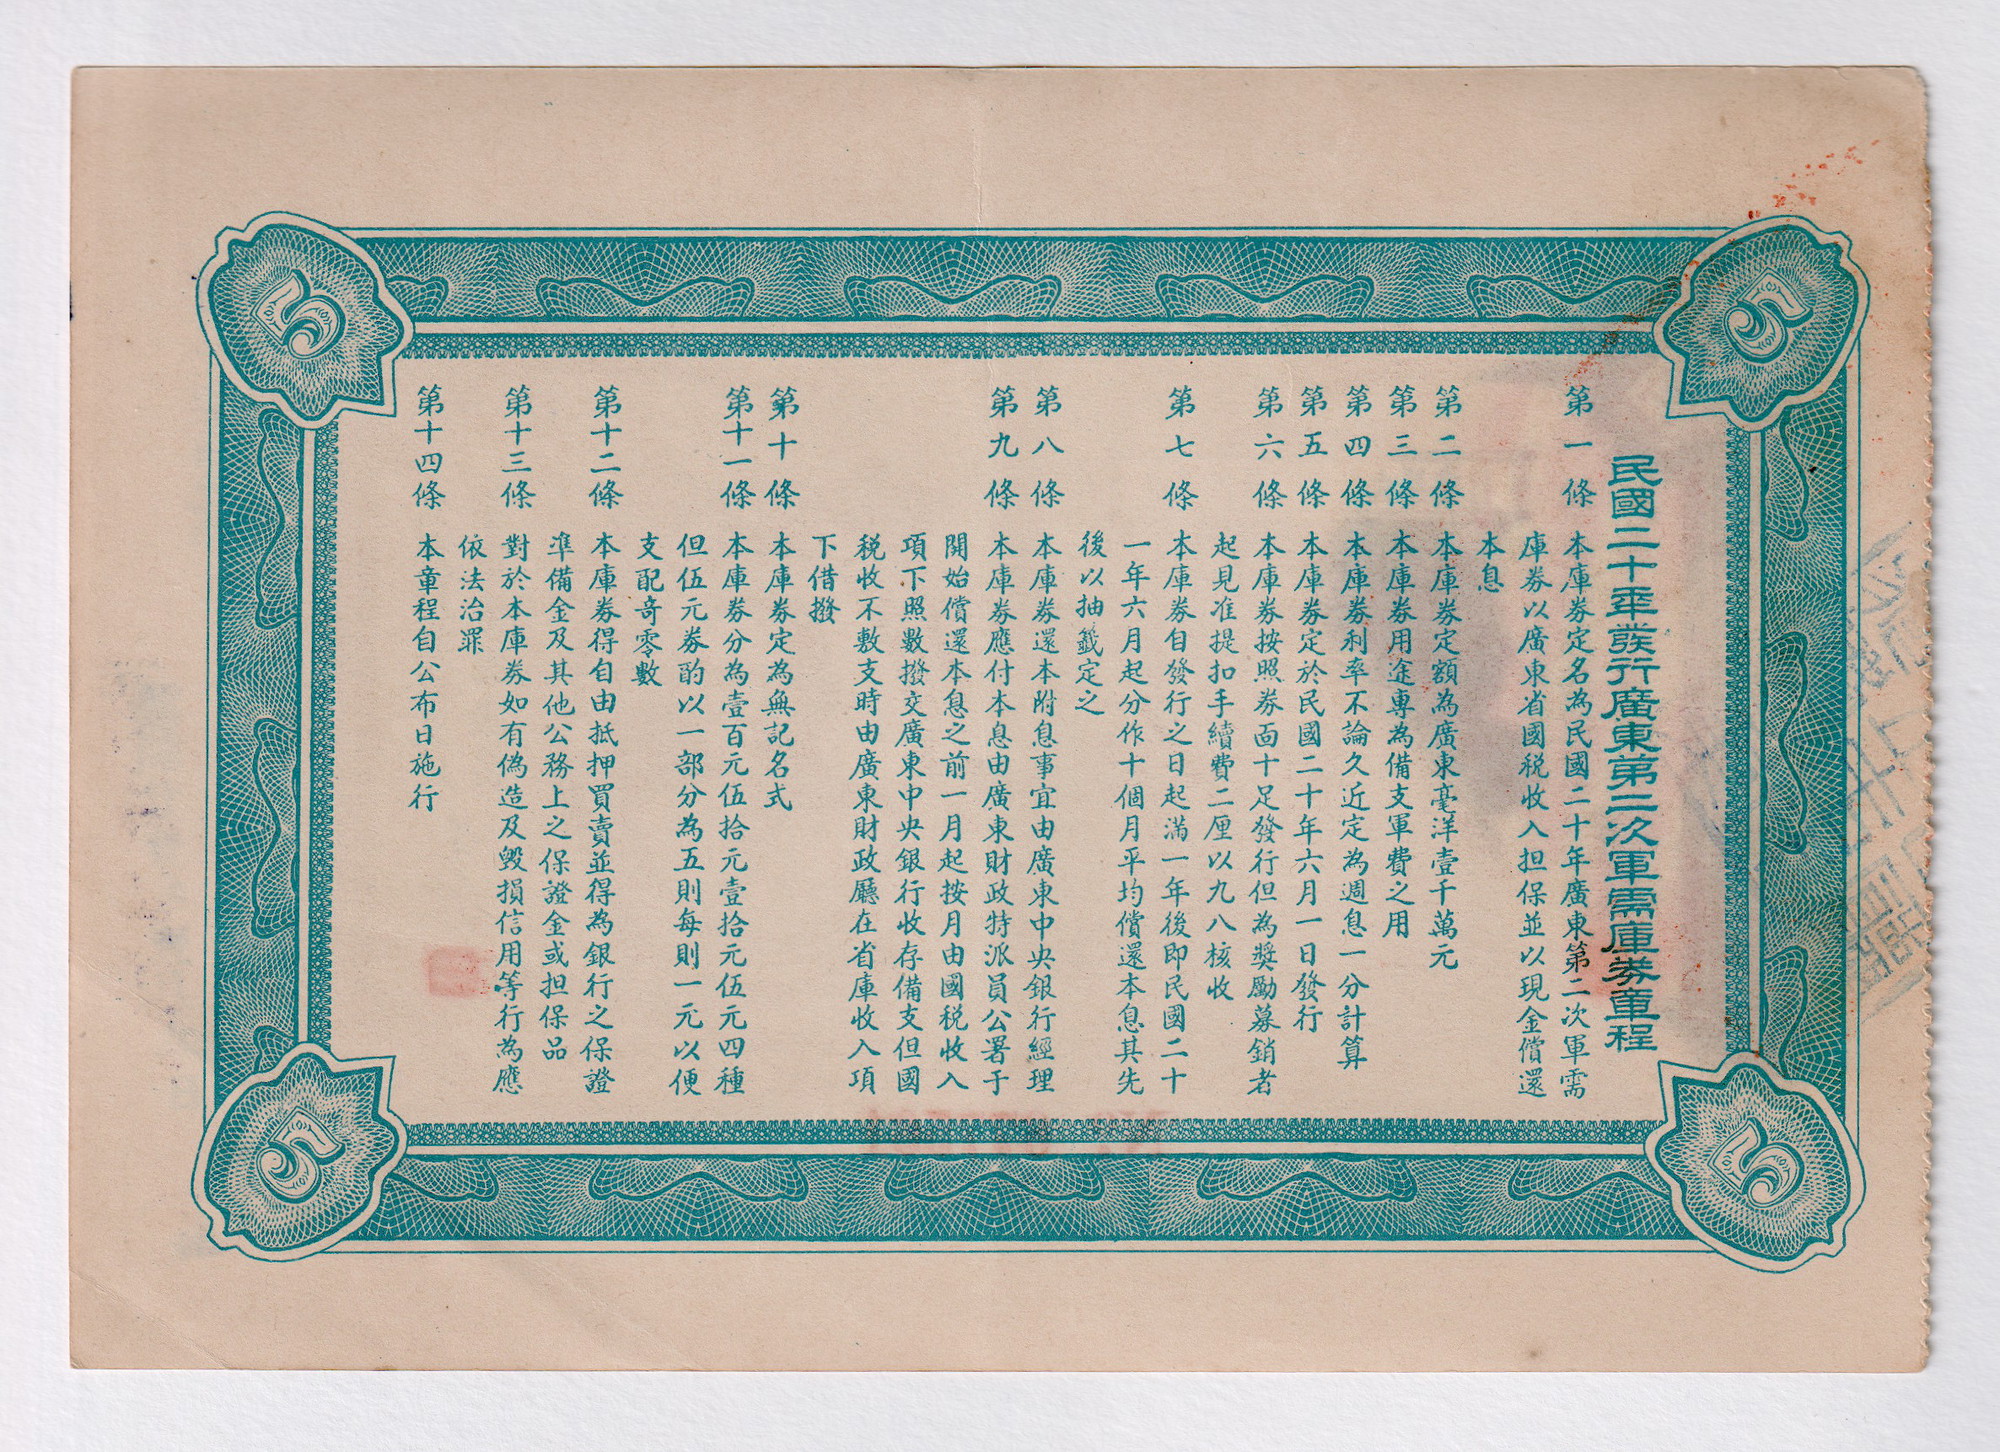 民國二十年發行廣東第二次軍需庫券章程
第一條 本庫券定名為民國二十年廣東第二次軍需
庫券以廣東省國税收入担保並以現金償還
本息
第二條 本庫券定額為廣東毫洋壹千萬元
第三條 本庫券用途專為備支軍費之用
第四條 本庫券利率不論久近定為週息一分計算
第五條 本庫券定於民國二十年六月一日發行
第六條 本庫券按照券面十足發行但為獎勵募銷者
起見准提扣手續費二厘以九八核收
第七條 本庫券自發行之日起滿一年後即民國二十
一年六月起分作十個月平均償還本息其先
後以抽籤定之
第八條 本庫券還本附息事宜由廣東中央銀行經理
第九條 本庫券應付本息由廣東財政特派員公署于
開始償還本息之前一月起按月由國税收入
項下照數撥交廣東中央銀行收存備支但國
税收不敷支時由廣東財政廳在省庫收入項
下借撥
第十條 本庫券定為無記名式
第十一條 本庫券分為壹百元伍拾元壹拾元伍元四種
但伍元券酌以一部分為五則每則一元以便
支配奇零數
第十二條 本庫券得自由抵押買賣並得為銀行之保證
準備金及其他公務上之保證金或担保品
第十三條 對於本庫券如有偽造及毀損信用等行為應
依法治罪
第十四條 本章程自公布日施行
5
5
5
5